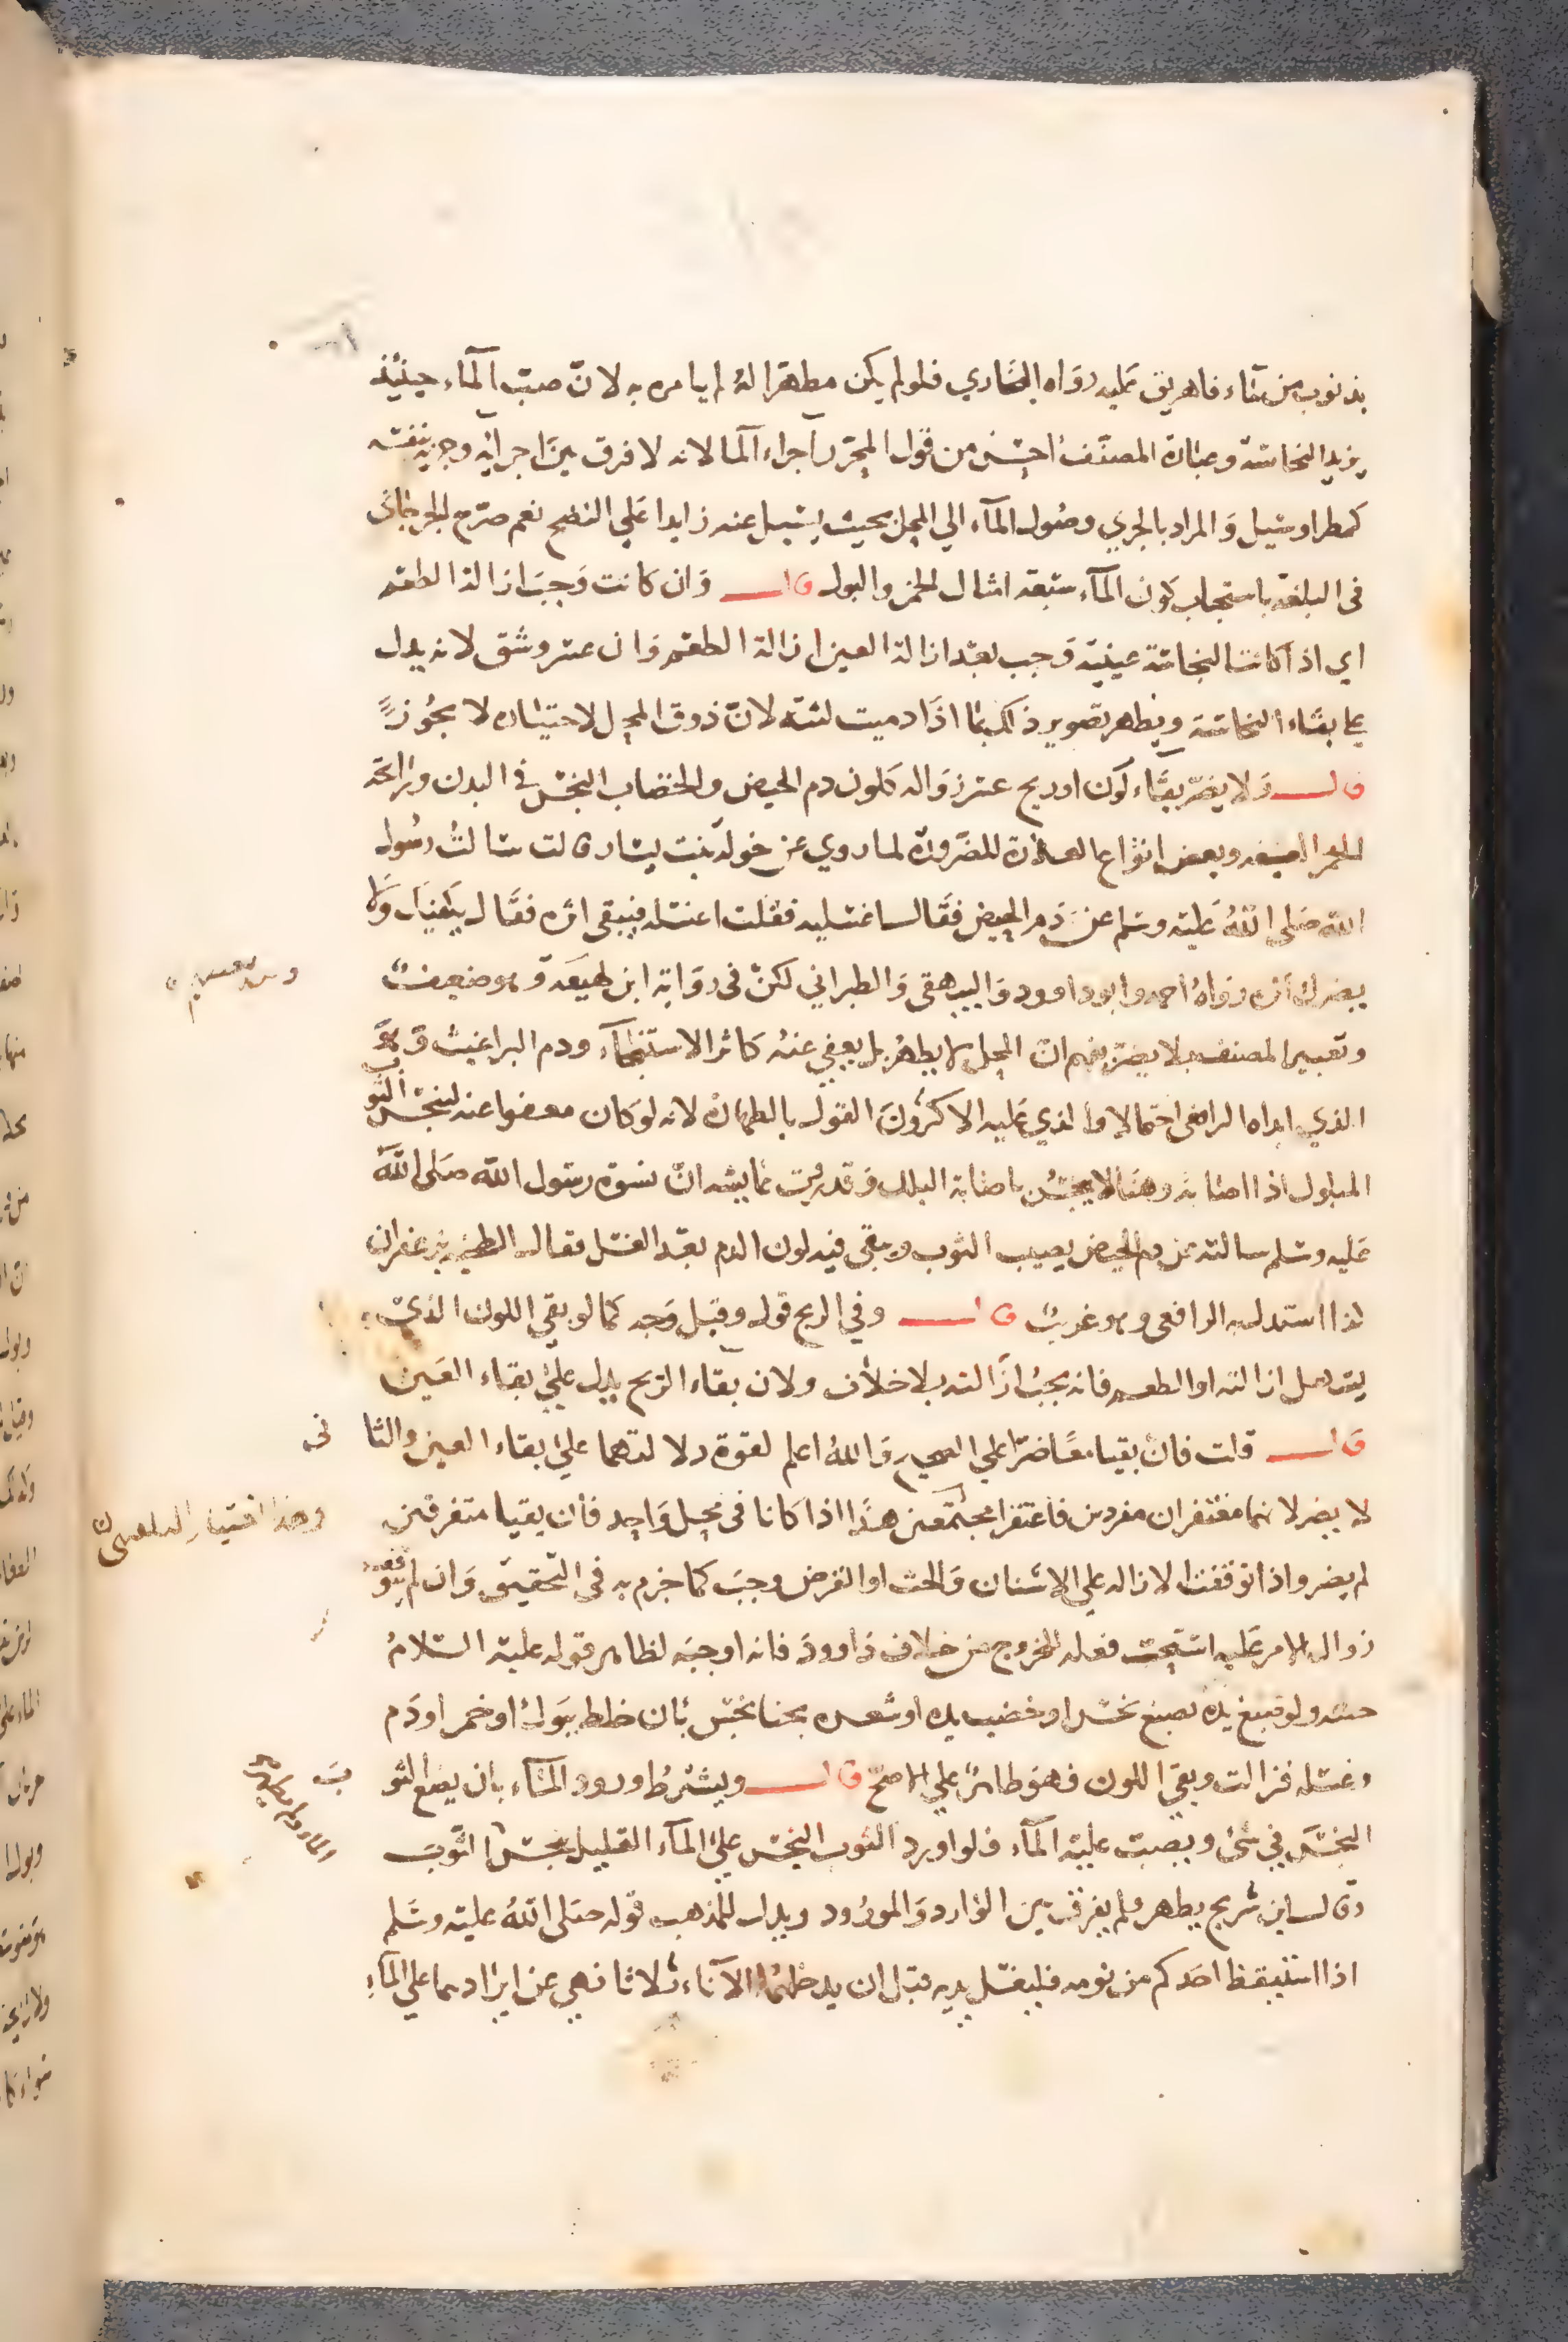 بذنوب من ماء فاهريق عليه رواه البخاري فلو لم يكن مطهرا له لم يامره به لان صب الماء حينئذ
يزيد النجاسة وعبارة المصنف احسن من قول المحرر اجراء الما لانه لا فرق بين اجرائه وجريه بنفسه
كمطر او سيل والمراد بالجري وصول الماء الي المحل بحيث يسيل عنه زايدا علي النضح نعم صرح الجرجاني
في البلغة باستحباب كون الماء سبعة امثال الخمر والبول قال وان كانت وجب ازالة الطعم
اي اذا كانت النجاسة عينية وجب بعد ازالة العين ازالة الطعم وان عسر وشق لانه يدل
علي بقاء النجاسة ويظهر تصوير ذلك بما اذا دميت لثته لان ذوق المحل لاختباره لا يجوز
قال ولا يضر بقاء لون او ريح عسر زواله كلون دم الحيض والخضاب النجس في البدن ورائحة
الخمر العتيقة وبعض انواع العذرة للضرورة لما روي عن خولة بنت يسار قالت سالت رسول
الله صلى الله عليه وسلم عن دم الحيض فقال اغسليه فقلت اغسله فيبقى اثره فقال يكفيك ولا
يضرك اثره رواه احمد وابو داوود والبيهقي والطبراني لكن في رواية ابن لهيعة وهو ضعيف
وتعبير المصنف بلا يضر يفهم ان المحل لا يطهر بل يعفي عنه كاثر الاستنجاء ودم البراغيث وهو
الذي ابداه الرافعي احتمالا والذي عليه الاكثرون القول بالطهارة لانه لو كان معفوا عنه لنجس الثوب
المبلول اذا اصابه وهنا لا ينجس باصابة البلل وقد روت عايشة ان نسوة رسول الله صلى الله
عليه وسلم سالته عن دم الحيض يصيب الثوب ويبقى فيه لون الدم بعد الغسل فقال الطخيه بزعفران
كذا استدل به الرافعي وهو غريب قال وفي الريح قول وقيل وجه كما لو بقي اللون الذي
يسهل ازالته او الطعم فانه يجب ازالته بلا خلاف ولان بقاء الريح يدل علي بقاء العين
قال قلت فان بقيا معا ضرا علي الصحيح والله اعلم لقوة دلالتهما علي بقاء العين والثاني
لا يضر لانهما مغتفران مفردين فاغتفرا مجتمعين هذا اذا كانا في محل واحد فان بقيا متفرقين
وهذا اختيار البلقيني
لم يضر واذا توقفت الازالة علي الاشنان والحت او القرص وجب كما جزم به في التحقيق وان لم يتوقف
زوال الامر عليه استحب فعله للخروج من خلاف داوود فانه اوجبه لظاهر قوله عليه السلام
حتيه ولو صبغ يده بصبغ نجس او خضب يده او شعره بحنا نجس بان خلط ببول او خمر او دم
وغسله فزالت وبقي اللون فهو طاهر علي الاصح قال ويشترط ورود الماء بان يضع الثوب
النجس في شئ ويصب عليه الماء فلو اورد الثوب النجس علي الماء القليل نجس الثوب
وقال ابن سريج يطهر ولم يفرق بين الوارد والمورود ويدل للمذهب قوله صلى الله عليه وسلم
اذا استيقظ احدكم من نومه فليغسل يديه قبل ان يدخلهما الاناء ثلاثا نهي عن ايرادهما علي الماء